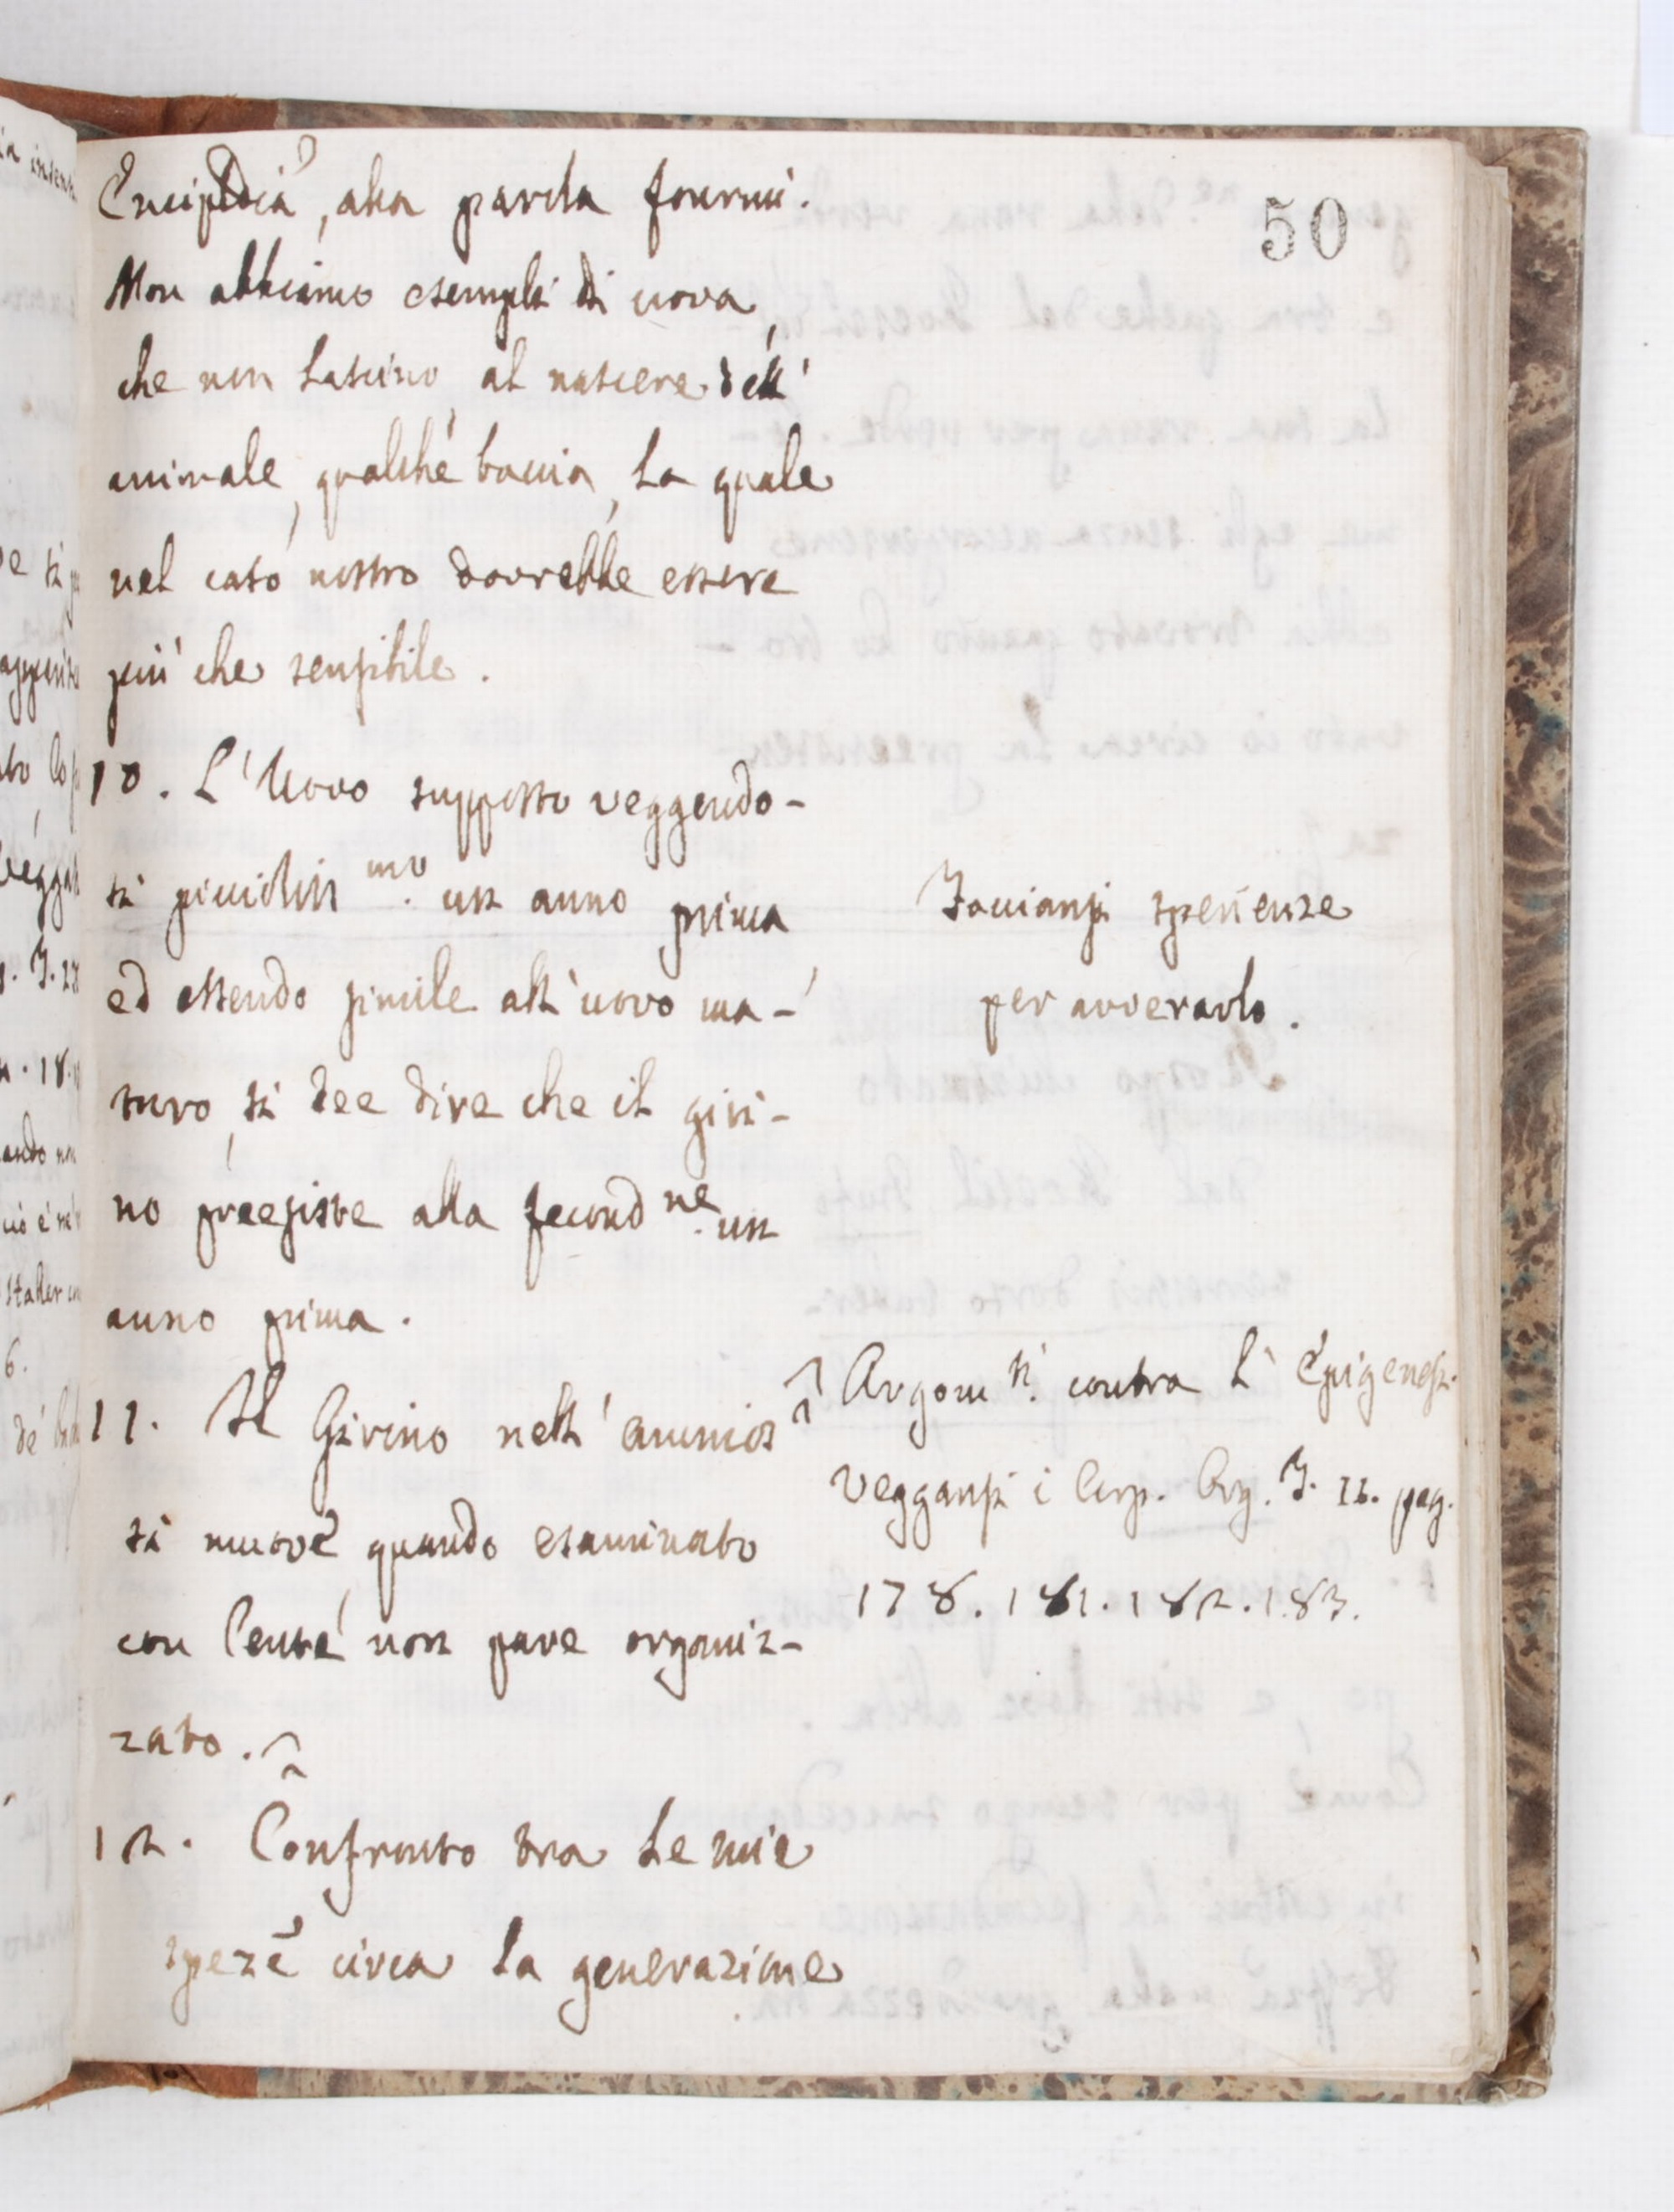 50
Encipedia, alla parola fourmi.
Non abbiamo esempli di uova,
che non lascino al nascere dell'
animale, qualche buccia, la quale
nel caso nostro dovrebbe essere
più che sensibile.
10. L'Uovo supposto veggendo-
si piccioliss mo. un anno prima
ed essendo simile all'uovo ma-
turo, si dee dire che il giri-
no preesiste alla fecond ne. un
anno prima.
11. Il Girino nell'amnios
si muove, quando esaminato
con lente non pare organiz-
zato.
12. Confronto tra le mie
spezē circa la generazione
Facciansi sperienze
per avverarlo.
Argom ti. contra l'Epigenesi.
Vegganfi i Corp. Org. T. II. pag.
178. 181. 182. 183.